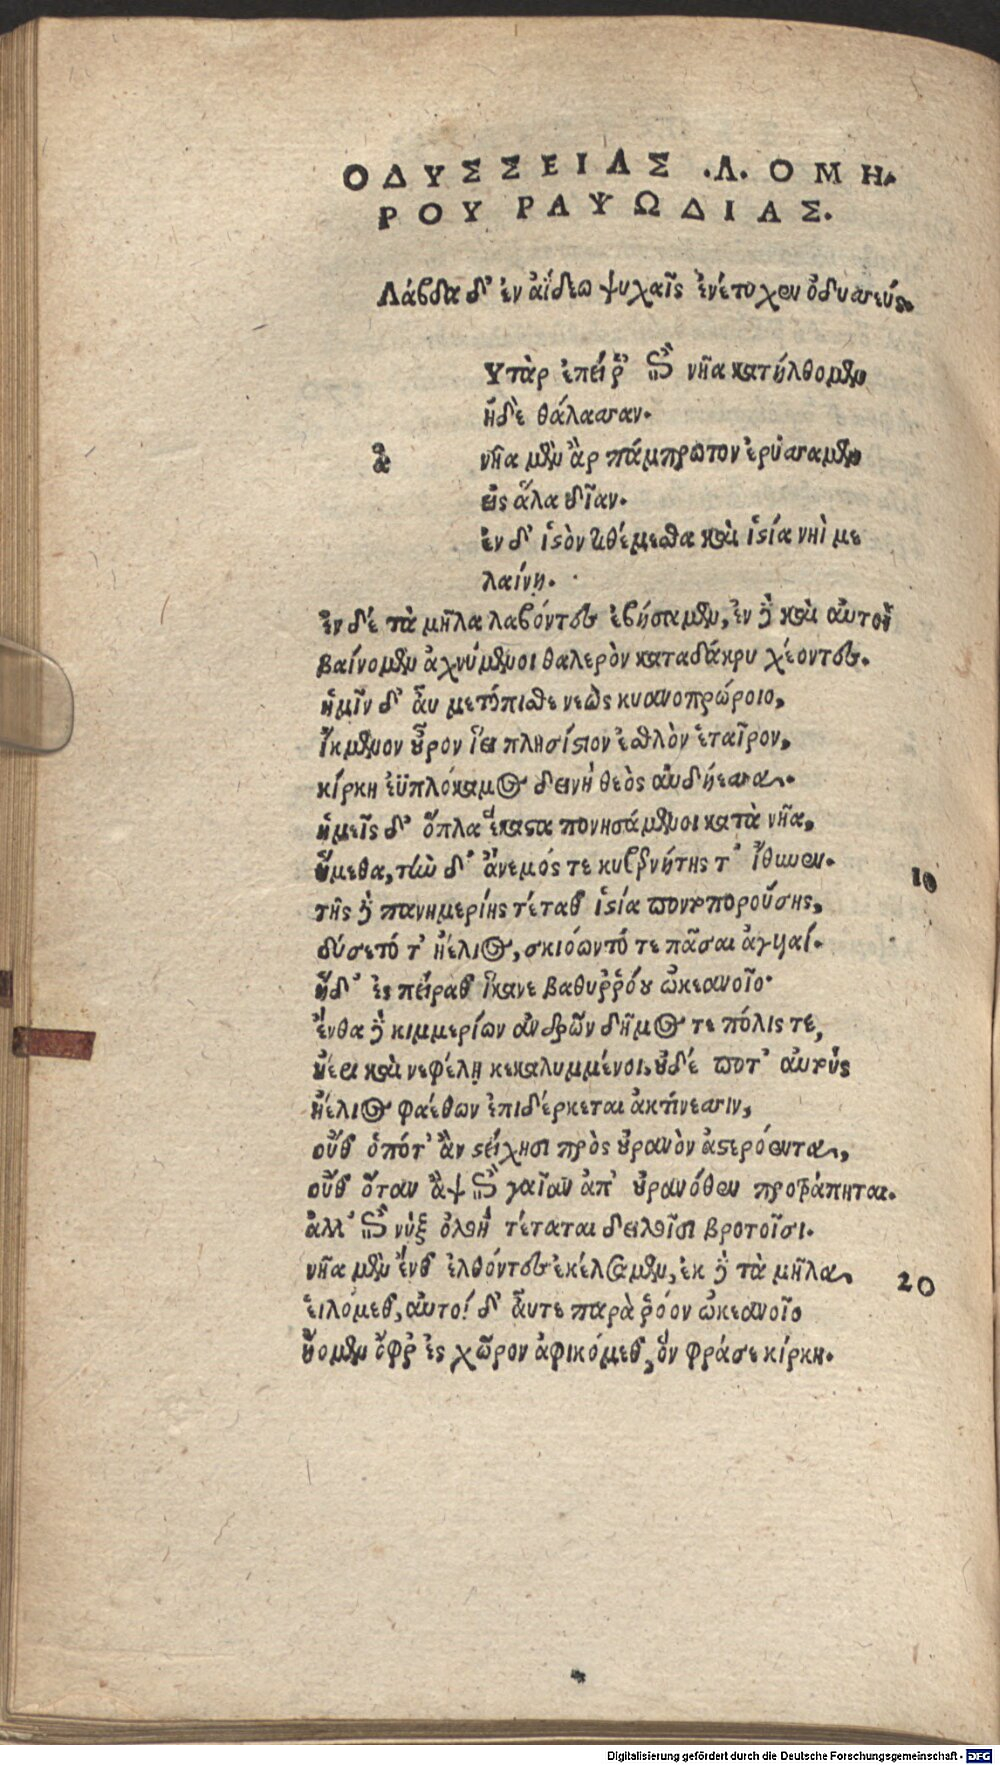 ΟΔΥΣΣΕΙΑΣ .Λ. ΟΜΗ-
ΡΟΥ ΡΑΨΩΔΙΑΣ.
Λάβδα δ' ἐν ἀΐδεω ψυχαῖς ἐνέτυχεν ὀδυσσεύς.
Υτὰρ ἐπεί ῥ' ἐπὶ νῆα κατήλθομεν
ἠδὲ θάλασσαν.
ἀ
νῆα μὲν ἂρ πάμπρωτον ἐρύσσαμεν
εἰς ἅλα δῖαν.
ἐν δ' ἱστὸν τιθέμεσθα καὶ ἱστία νηὶ με
λαίνῃ.
ἐν δέ τὰ μῆλα λαβόντες ἐβήσαμεν, ἐν δὲ καὶ αὐτοὶ
βαίνομεν ἀχνύμενοι θαλερὸν κατὰ δάκρυ χέοντες.
ἡμῖν δ' ἆυ μετόπισθε νεὼς κυανοπρώροιο,
ἴκμενον οὖρον ἵει πλησίστιον ἐσθλὸν ἑταῖρον,
κίρκη ἐϋπλόκαμος δεινὴ θεὸς αὐδήεσσα.
ἡμεῖς δ' ὅπλα ἕκαστα πονησάμενοι κατὰ νῆα,
ἥμεθα, τὴν δ' ἄνεμός τε κυβερνήτης τ' ἴθυνεν.
10
τῆς δὲ πανημερίης τέταθ' ἱστία ποντοπορούσης,
δύσετό τ' ἠέλιος, σκιόωντό τε πᾶσαι ἀγυιαί.
ἡ δ' ἐς πείραθ' ἵκανε βαθυῤῥόου ὠκεανοῖο.
ἔνθα δὲ κιμμερίων ἀνδρῶν δῆμος τε πόλις τε,
ἠέρι καὶ νεφέλῃ κεκαλυμμένοι, οὐδέ ποτ' αὐτοὺς
ἠέλιος φαέθων ἐπιδέρκεται ἀκτήνεσσιν,
οὔθ' ὁπότ' ἂν στείχησι πρὸς οὐρανὸν ἀστερόεντα,
οὔθ' ὅταν ἂψ ἐπὶ γαῖαν ἀπ' οὐρανόθεν προτράπηται.
ἀλλ' ἐπὶ νὺξ ὀλοὴ τέταται δειλοῖσι βροτοῖσι.
νῆα μὲν ἔνθ' ἐλθόντες ἐκέλσαμεν, ἐκ δὲ τὰ μῆλα
20
εἱλόμεθ', αὐτοὶ δ' ἆυτε παρὰ ῥόον ὠκεανοῖο
ᾔομεν ὄφρ' ἐς χῶρον ἀφικόμεθ', ὃν φράσε κίρκη.
Digitalisierung gefördert durch die Deutsche Forschungsgemeinschaft - DFG